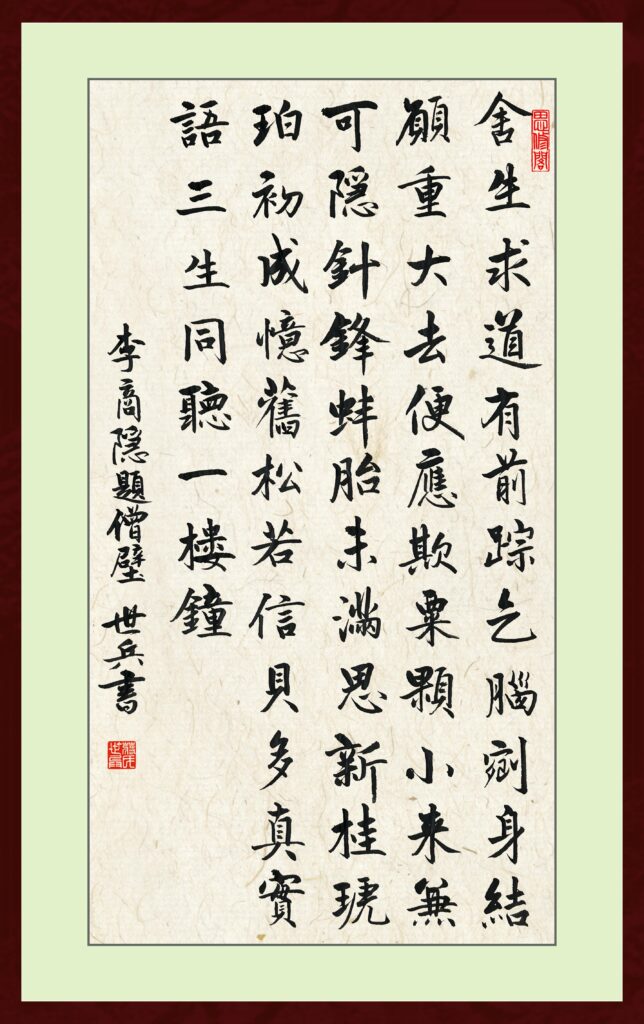 思修閣
舍生求道有前踪乞腦剜身結
願重大去便應欺粟顆小来兼
可隱針鋒蚌胎未滿思新桂琥
珀初成憶舊松若信貝多真實
語三生同聽一楼鐘
李商隱題僧壁 世兵書